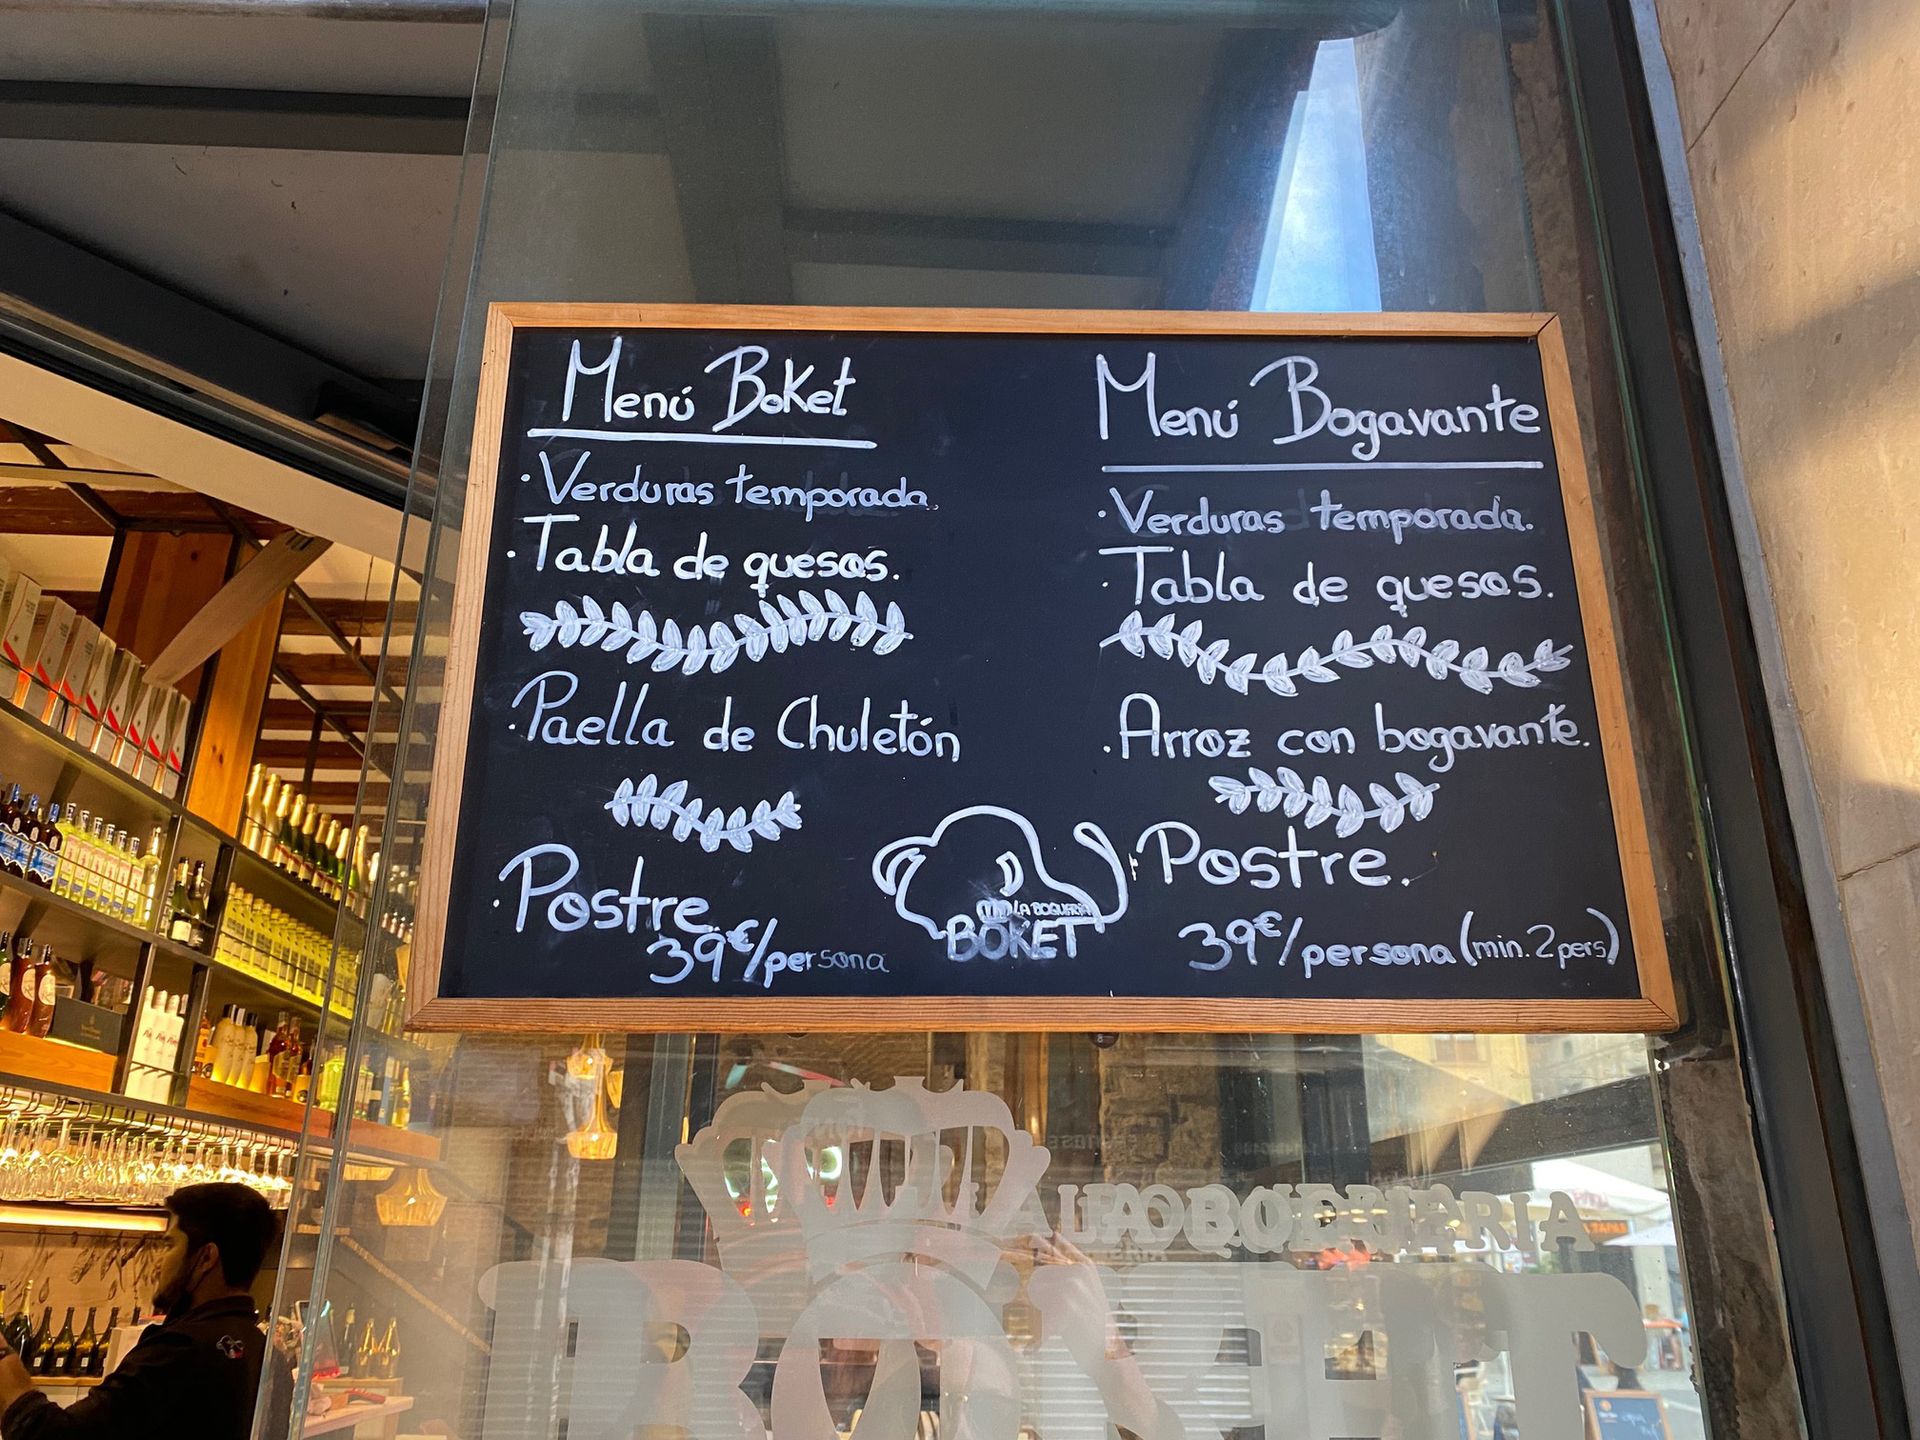 Menú Boket
· Verduras temporada.
· Tabla de quesos.
· Paella de Chuletón
· Postre.
39€/persona
Menú Bogavante
· Verduras temporada.
· Tabla de quesos.
· Arroz con bogavante.
· Postre.
39€/persona (min. 2 pers)
LA BOQUERIA
BOKET
LA BOQUERIA
BOKET